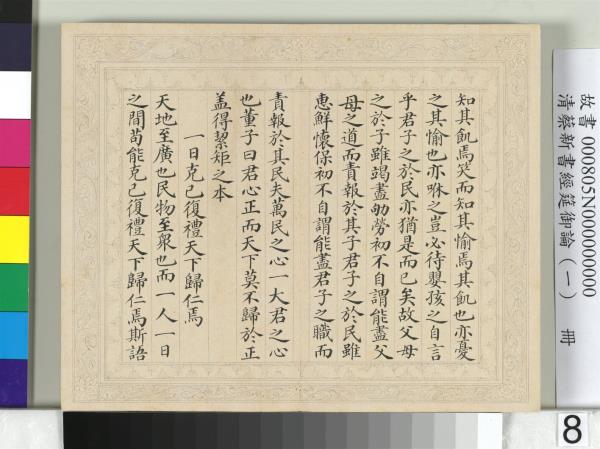 知其飢焉笑而知其愉焉其飢也亦憂
之其愉也亦咻之豈必待嬰孩之自言
乎君子之於民亦猶是而已矣故父母
之於子雖竭盡劬勞初不自謂能盡父
母之道而責報於其子君子之於民雖
惠鮮懷保初不自謂能盡君子之職而
責報於其民夫萬民之心一大君之心
也董子曰君心正而天下莫不歸於正
蓋得絜矩之本
一日克己復禮天下歸仁焉
天地至廣也民物至衆也而一人一日
之間苟能克己復禮天下歸仁焉斯語
故書 000805N000000000
清蔡新書經筵御論(一) 冊
8